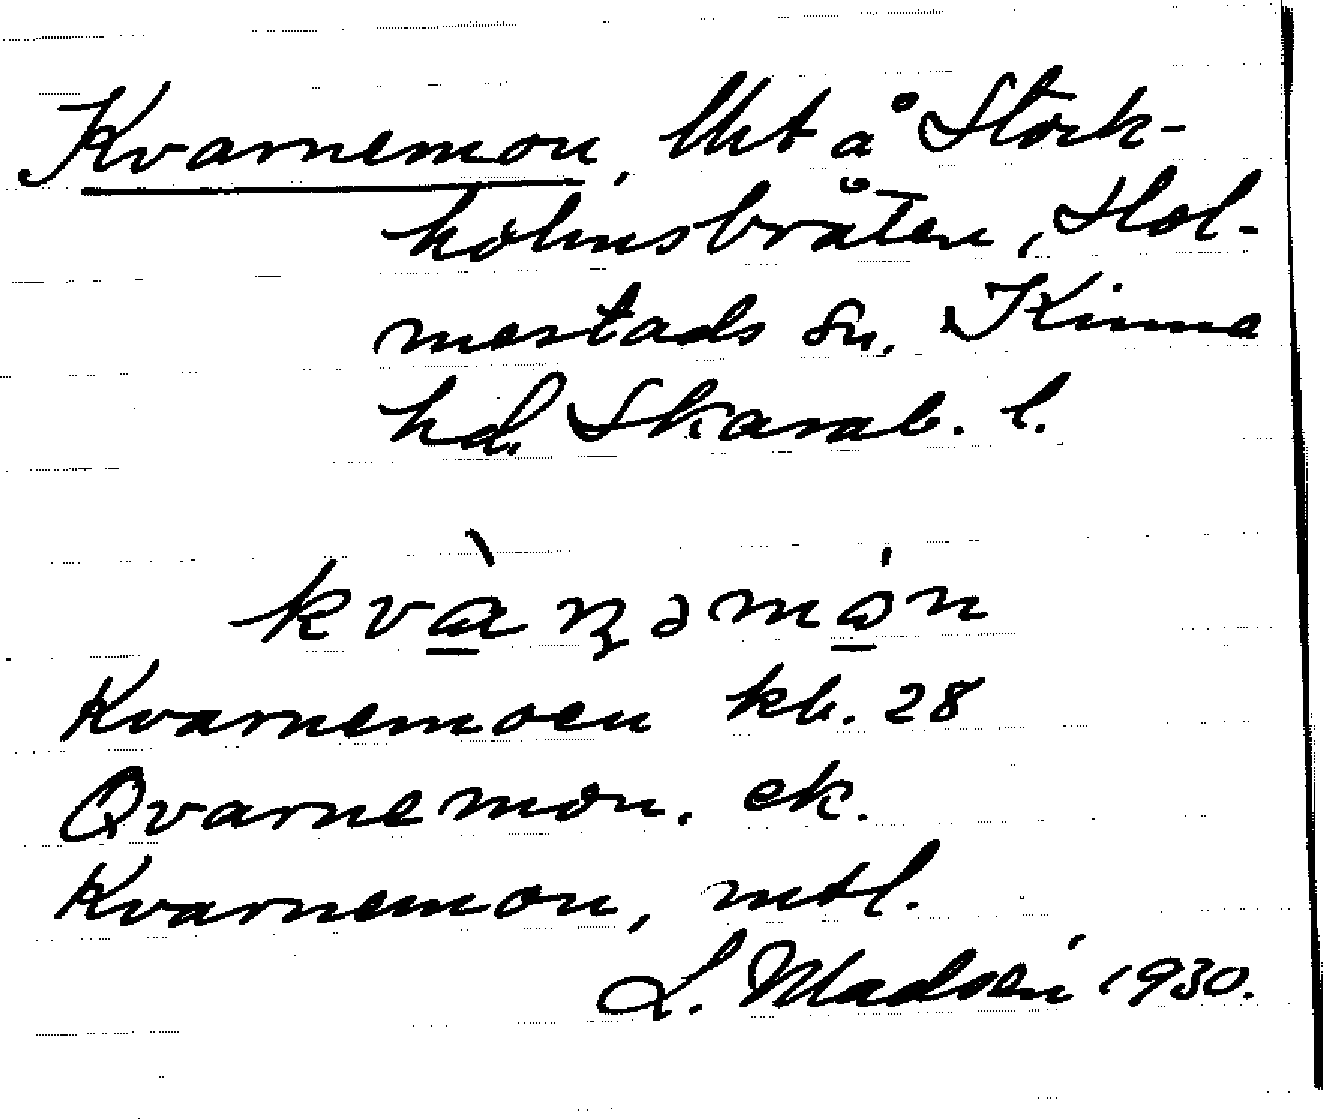 Kvarnemon, lht å Stock-
holmsbråten, Hol-
mestads sn, Kinne
hd. Skarab. l.
kvànəmón
Kvarnemoen kb. 28
Qvarnemon. ek.
Kvarnemon, mtl.
L. Madsén 1930.